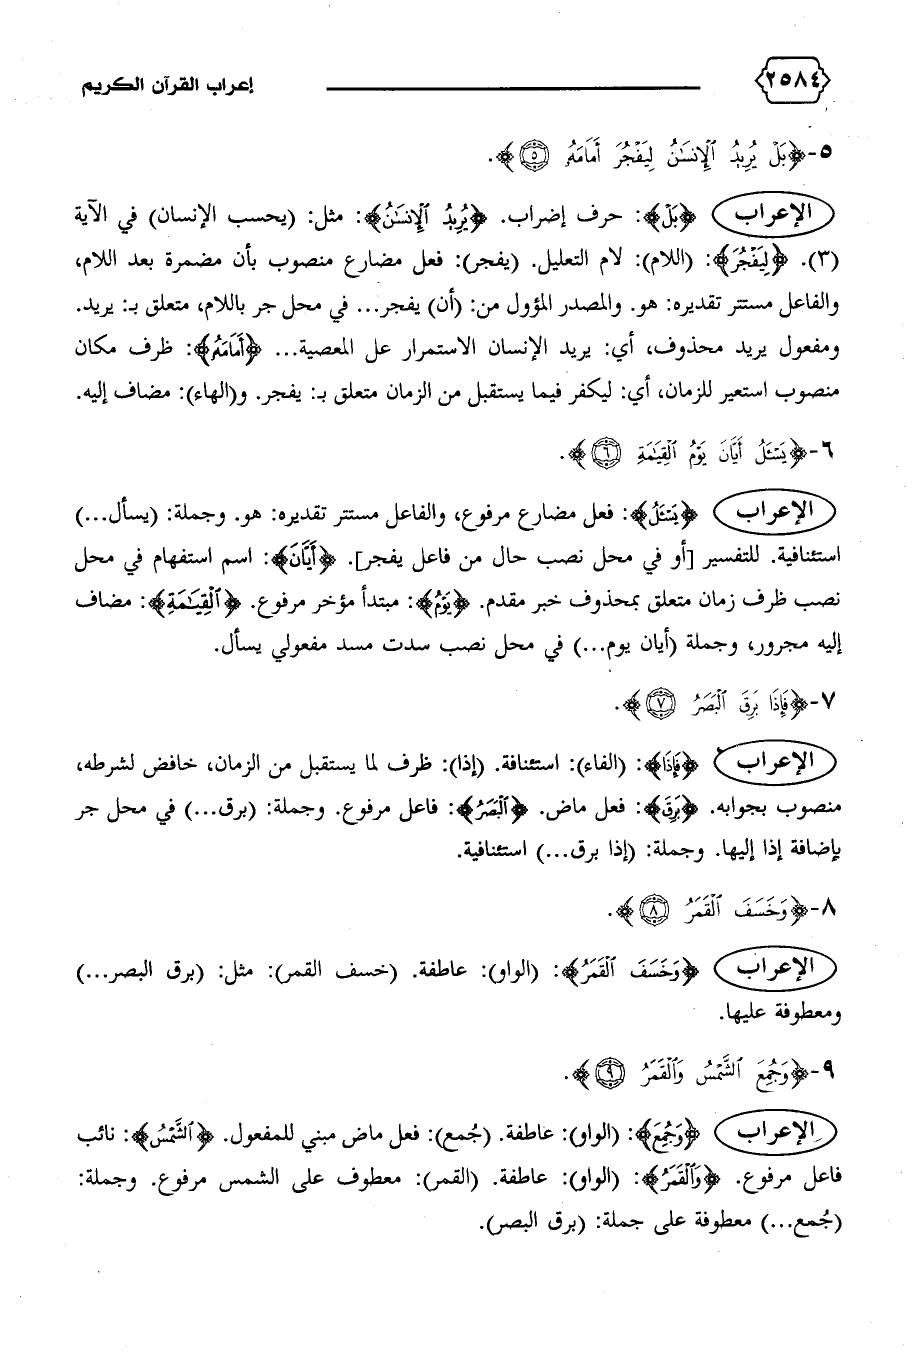 ٢٥٨٤ إعراب القرآن الكريم
٥-﴿بَلْ يُرِيدُ ٱلْإِنسَٰنُ لِيَفْجُرَ أَمَامَهُۥ ۝٥﴾.
الإعراب ﴿بَلْ﴾: حرف إضراب. ﴿يُرِيدُ ٱلْإِنسَٰنُ﴾: مثل: (يحسب الإنسان) في الآية
(٣). ﴿لِيَفْجُرَ﴾: (اللام): لام التعليل. (يفجر): فعل مضارع منصوب بأن مضمرة بعد اللام،
والفاعل مستتر تقديره: هو. والمصدر المؤول من: (أن) يفجر... في محل جر باللام، متعلق بـ: يريد.
ومفعول يريد محذوف، أي: يريد الإنسان الاستمرار عل المعصية... ﴿أَمَامَهُۥ﴾: ظرف مكان
منصوب استعير للزمان، أي: ليكفر فيما يستقبل من الزمان متعلق بـ: يفجر. و(الهاء): مضاف إليه.
٦-﴿يَسْـَٔلُ أَيَّانَ يَوْمُ ٱلْقِيَٰمَةِ ۝٦﴾.
الإعراب ﴿يَسْـَٔلُ﴾: فعل مضارع مرفوع، والفاعل مستتر تقديره: هو. وجملة: (يسأل...)
استئنافية. للتفسير [أو في محل نصب حال من فاعل يفجر]. ﴿أَيَّانَ﴾: اسم استفهام في محل
نصب ظرف زمان متعلق بمحذوف خبر مقدم. ﴿يَوْمُ﴾: مبتدأ مؤخر مرفوع. ﴿ٱلْقِيَٰمَةِ﴾: مضاف
إليه مجرور، وجملة (أيان يوم...) في محل نصب سدت مسد مفعولي يسأل.
٧-﴿فَإِذَا بَرِقَ ٱلْبَصَرُ ۝٧﴾.
الإعراب ﴿فَإِذَا﴾: (الفاء): استئنافة. (إذا): ظرف لما يستقبل من الزمان، خافض لشرطه،
منصوب بجوابه. ﴿بَرِقَ﴾: فعل ماض. ﴿ٱلْبَصَرُ﴾: فاعل مرفوع. وجملة: (برق...) في محل جر
بإضافة إذا إليها. وجملة: (إذا برق...) استئنافية.
٨-﴿وَخَسَفَ ٱلْقَمَرُ ۝٨﴾.
الإعراب ﴿وَخَسَفَ ٱلْقَمَرُ﴾: (الواو): عاطفة. (خسف القمر): مثل: (برق البصر...)
ومعطوفة عليها.
٩-﴿وَجُمِعَ ٱلشَّمْسُ وَٱلْقَمَرُ ۝٩﴾.
الإعراب ﴿وَجُمِعَ﴾: (الواو): عاطفة. (جُمع): فعل ماض مبني للمفعول. ﴿ٱلشَّمْسُ﴾: نائب
فاعل مرفوع. ﴿وَٱلْقَمَرُ﴾: (الواو): عاطفة. (القمر): معطوف على الشمس مرفوع. وجملة:
(جُمع...) معطوفة على جملة: (برق البصر).